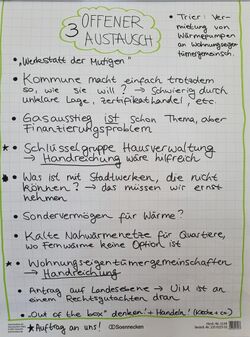 3 OFFENER
AUSTAUSCH
• Trier: Ver-
mietung von
Wärmepumpen
an Wohnungseigen-
tümergemeinsch.
• "Werkstatt der Mutigen"
• Kommune macht einfach trotzdem
so, wie sie will? → Schwierig durch
unklare Lage, Zertifikathandel, etc.
• Gasausstieg ist schon Thema, aber
Finanzierungsproblem
* Schlüsselgruppe Hausverwaltung
→ Handreichung wäre hilfreich
• Was ist mit Stadtwerken, die nicht
können? → das müssen wir ernst
nehmen
• Sondervermögen für Wärme?
• Kalte Nahwärmenetze für Quartiere,
wo Fernwärme keine Option ist
* Wohnungseigentümergemeinschaften
→ Handreichung
• Antrag auf Landesebene → UiM ist an
einem Rechtsgutachten dran
• "Out of the box" denken! + Handeln! (Kirche + co.)
* Auftrag an uns!
Soennecken